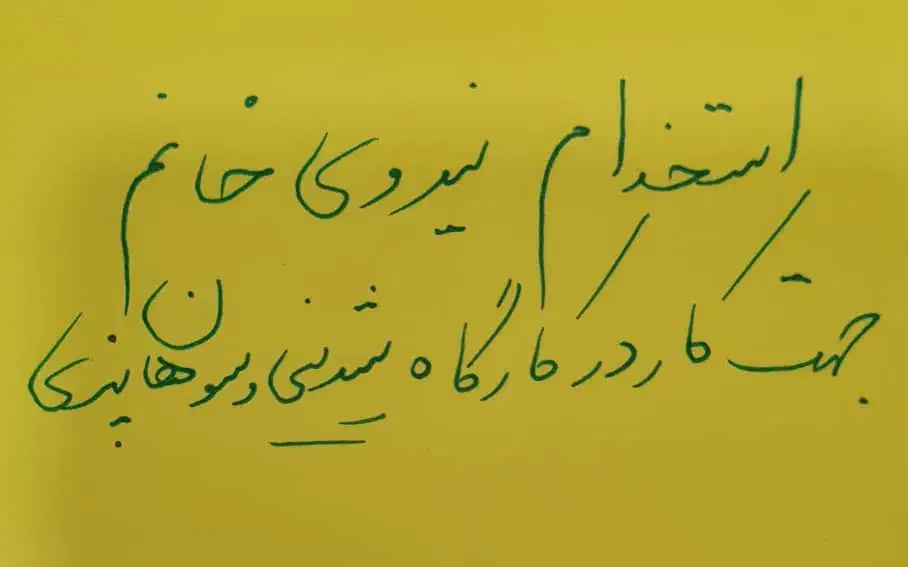 استخدام نیروی خانم
جهت کار در کارگاه شیرینی و سوهان پزی